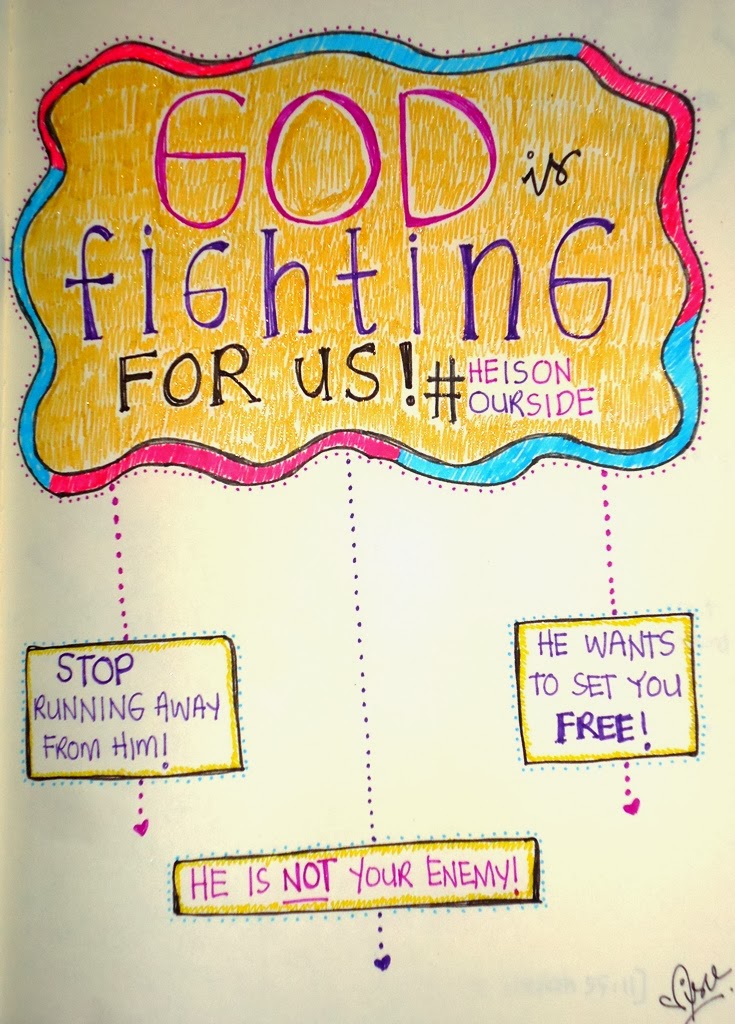 GOD is
fighting
FOR US! #HEISON
OURSIDE
STOP
RUNNING AWAY
FROM HIM!
HE WANTS
TO SET YOU
FREE!
HE IS NOT YOUR ENEMY!